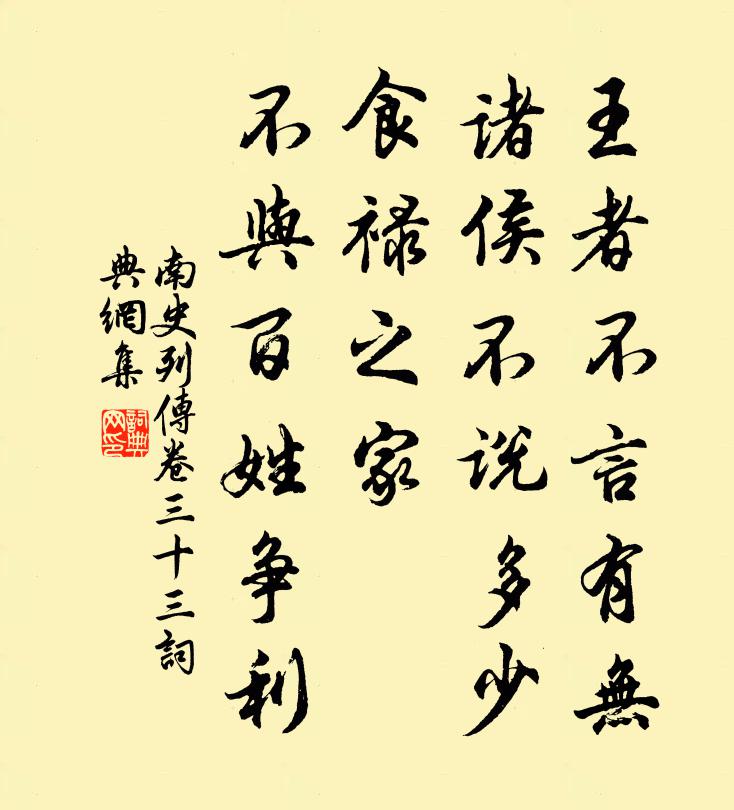 王者不言有無
諸侯不说多少
食禄之家
不與百姓争利
南史列傳卷三十三詞
典網集
詞典
网印